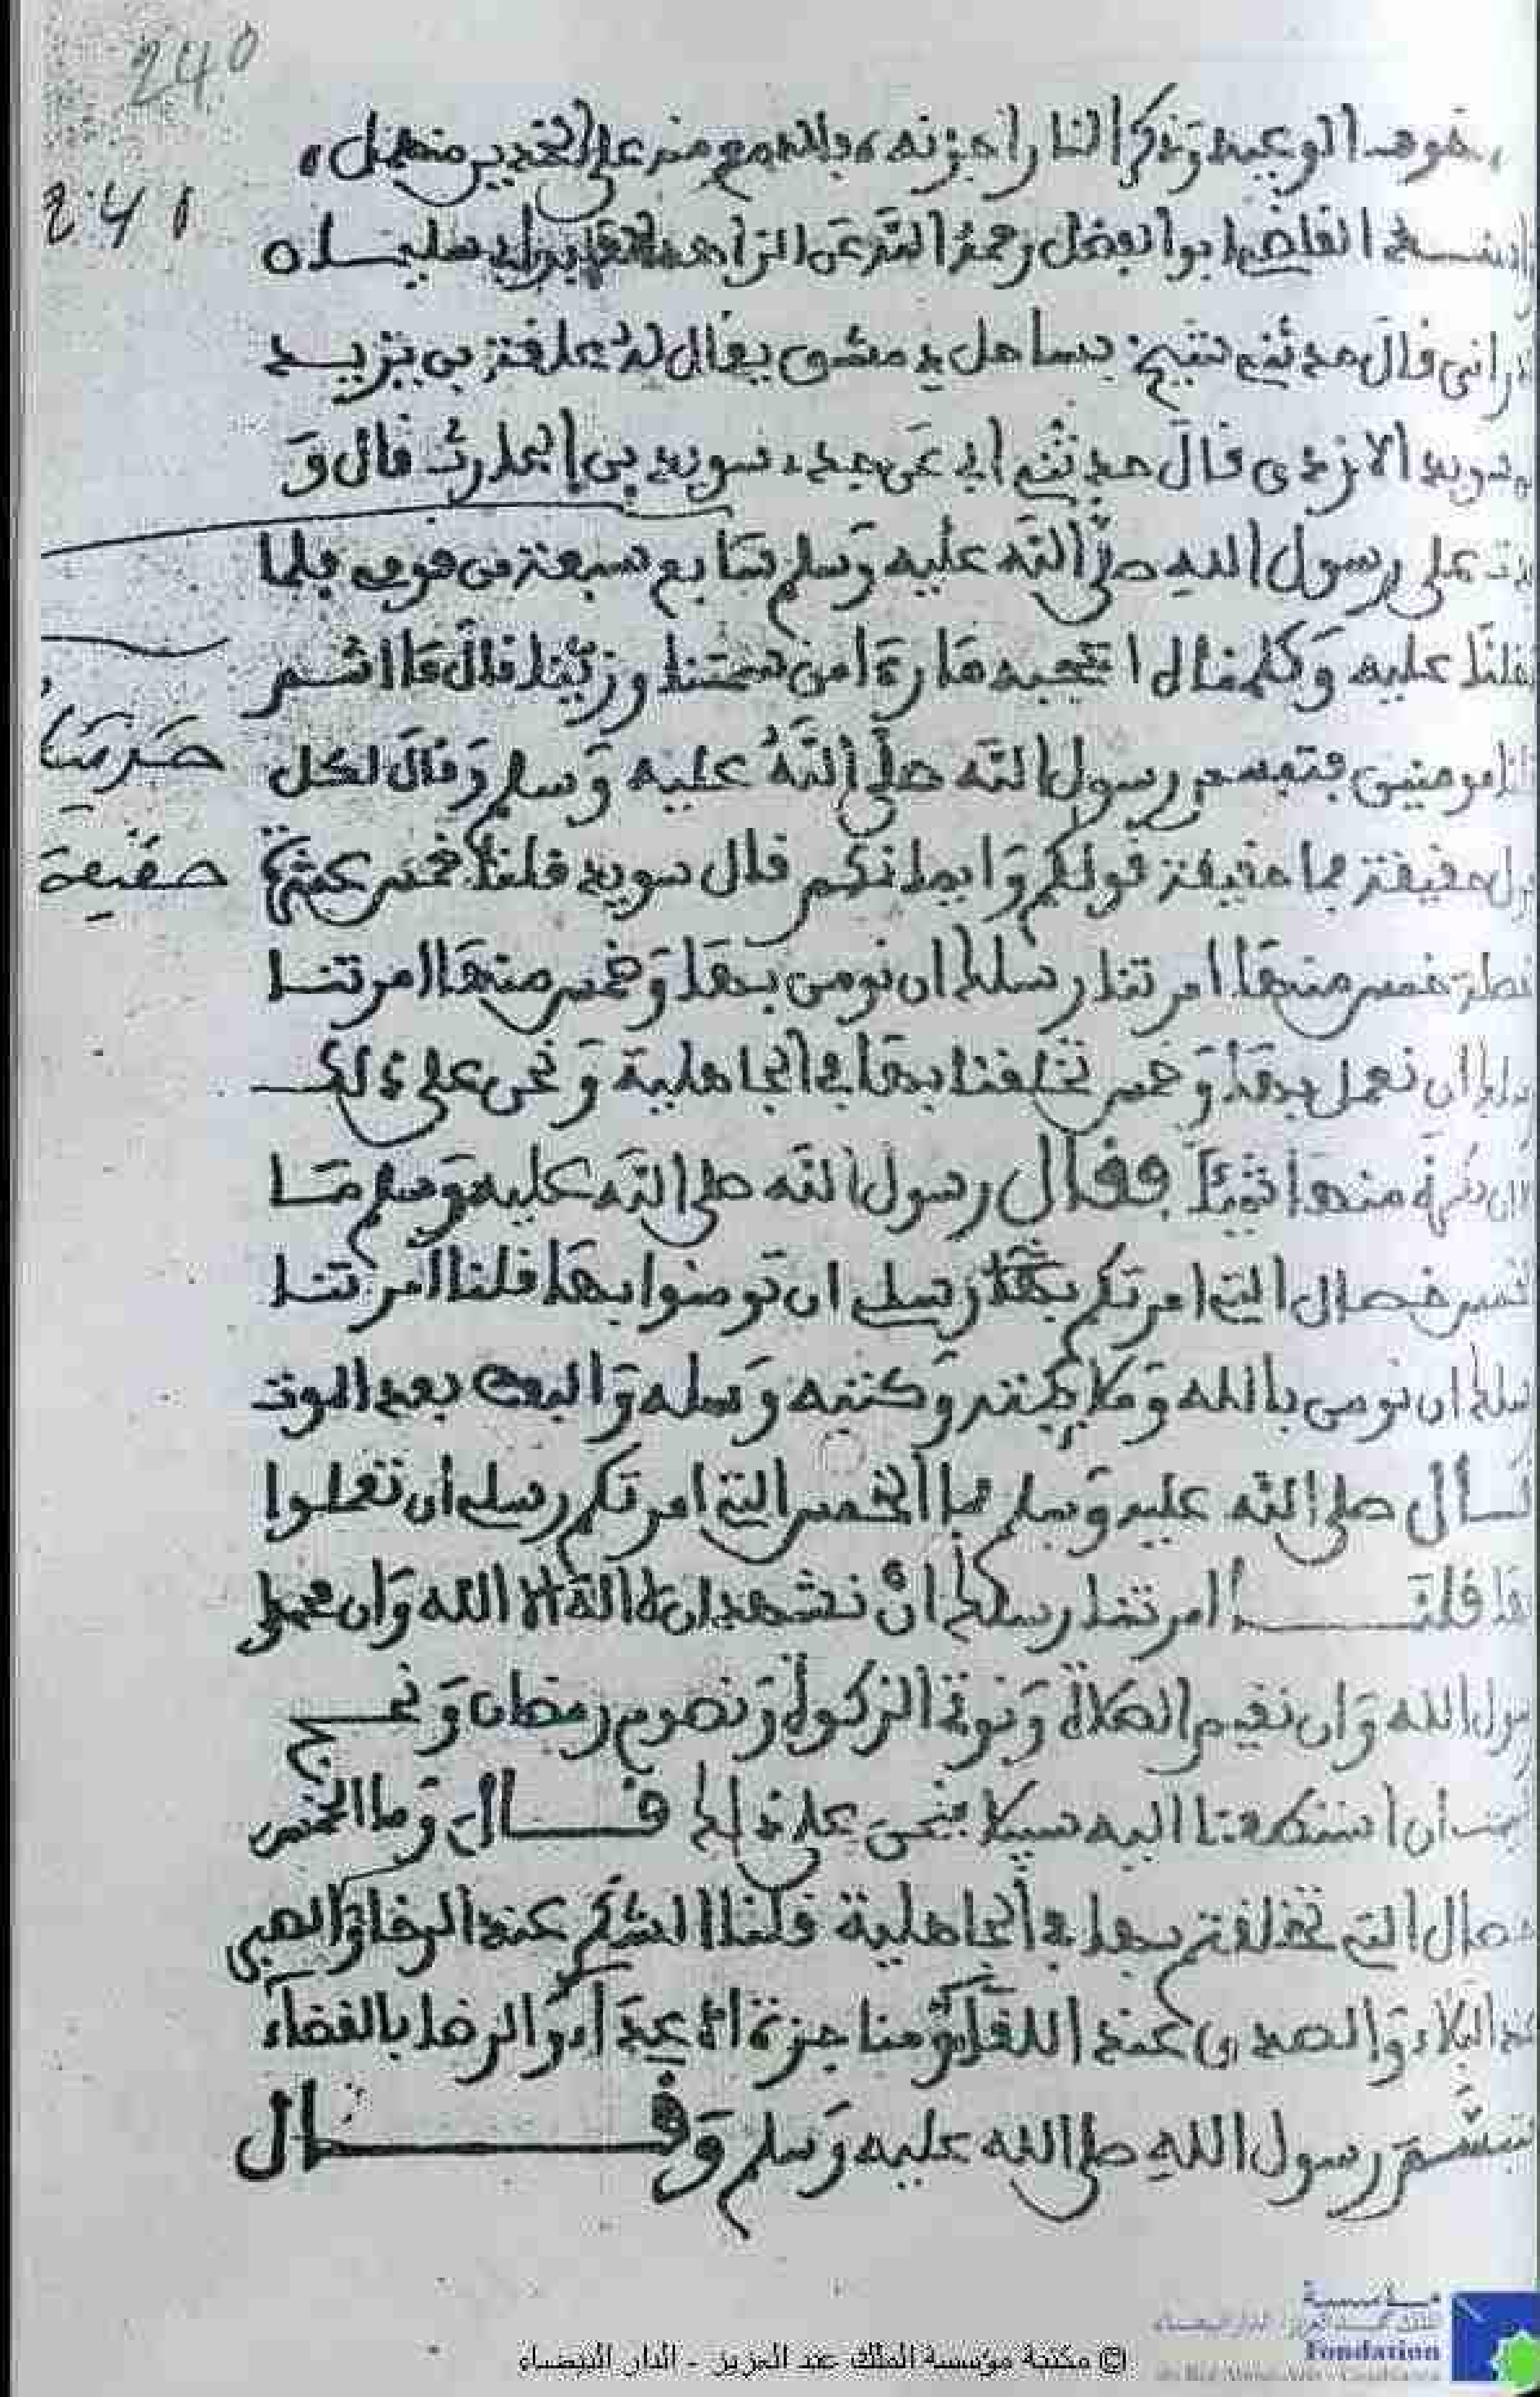 240
241
خوف الوعيد وذكر النار احزنه فالدمع منه على الخدين منهمل
القاضي ابو الفضل رحمة الله عن الزاهد سليمان
راني قال حدثني شيخ بساحل دمشق يقال له علقمة بن يزيد
سويد الازدي قال حدثني ابي عن جده سويد بن الحارث قال و
على رسول الله صلى الله عليه وسلم سابع سبعة من قومي فلما
عليه وكلمناه اعجبه ما راى من سمتنا وزينا فقال ما انتم
مومنين فتبسم رسول الله صلى الله عليه وسلم وقال لكل
حقيقة فما حقيقة قولكم وايمانكم قال سويد قلنا خمس عشرة
خمس منها امرتنا رسلك ان نومن بها وخمس منها امرتنا
ان نعمل بها وخمس تخلقنا بها في الجاهلية ونحن على ذلك
منها شيئا فقال رسول الله صلى الله عليه وسلم ما
خصال التي امرتكم بها رسلي ان تومنوا بها قلنا امرتنا
ان نومن بالله وملايكته وكتبه ورسله والبعث بعد الموت
قال صلى الله عليه وسلم فما الخمس التي امرتكم رسلي ان تعملوا
قلنا امرتنا رسلك ان نشهد ان لا اله الا الله وان محمدا
رسول الله وان نقيم الصلاة ونوتي الزكوة ونصوم رمضان ونحج
ان استطعنا اليه سبيلا فنحن على ذلك قال وما الخمس
التي تخلقتم بها في الجاهلية قلنا الشكر عند الرخاء والصبر
البلاء والصدق عند اللقاء ومناجزة الاعداء والرضا بالقضاء
فتبسم رسول الله صلى الله عليه وسلم وقال
حقيقة
مؤسسة
Fondation
© مكتبة مؤسسة الملك عبد العزيز - الدار البيضاء